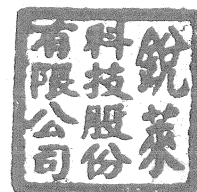 銳萊
科技股份
有限公司